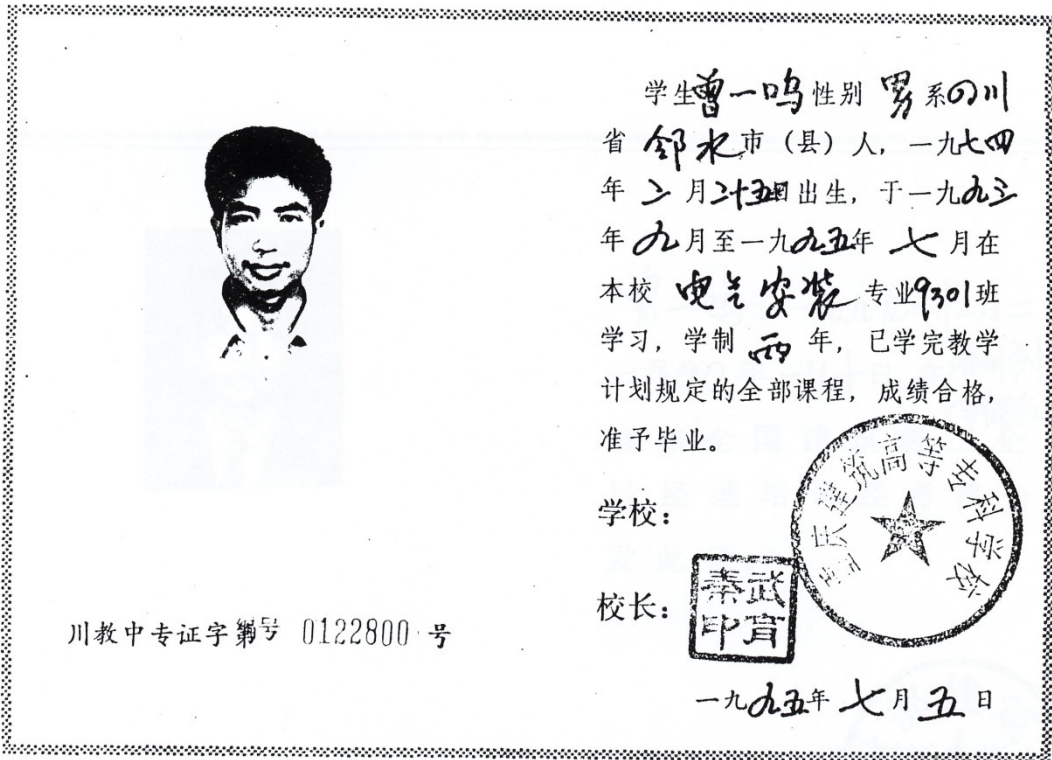 学生曾一鸣性别 男 系四川
省 邻水 市（县）人，一九七四
年 二 月二十五日出生，于一九九三
年 九 月至一九九五年 七 月在
本校 电气安装 专业9301班
学习，学制 两 年，已学完教学
计划规定的全部课程，成绩合格，
准予毕业。
学校：
重庆建筑高等专科学校
校长：
秦武
印育
川教中专证字 编号 0122800 号
一九九五年 七 月 五 日